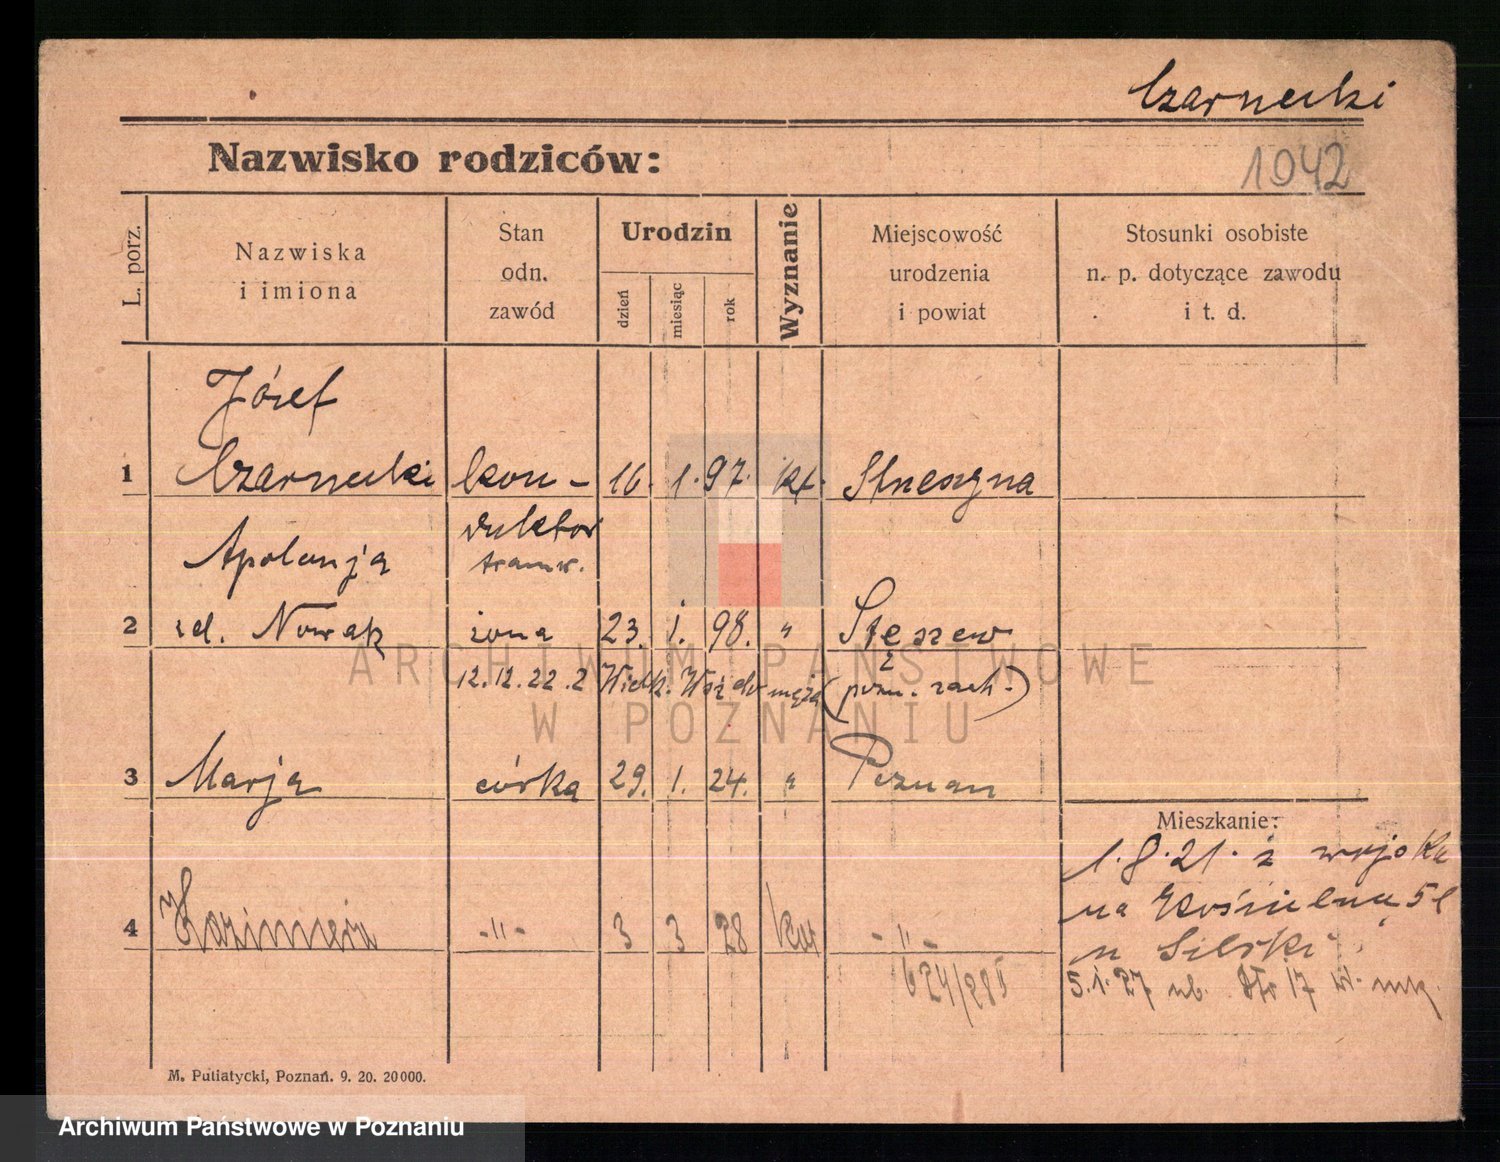 Czarnecki
Nazwisko rodziców:
1042
L. porz.
Nazwiska
i imiona
Stan
odn.
zawód
Urodzin
dzień
miesiąc
rok
Wyznanie
Miejscowość
urodzenia
i powiat
Stosunki osobiste
n. p. dotyczące zawodu
i t. d.
Józef
1 Czarnecki kon- 16. 1. 97. kt.
duktor
Apolonja tramw.
2 zd. Nowak żona 23. 1. 98. " Stęszew
12.12.22. z Wielk. do męża (pozn. zach.)
3 Marja córka 29. 1. 24. " Poznan
Mieszkanie:
1.8.21. z wojska
4 Kazimiera -"- 3 3 28 kat -"-
na Kościelną 5
u
5.1.27 17
M. Putiatycki, Poznań. 9. 20. 20000.
ARCHIWUM PAŃSTWOWE
W POZNANIU
Archiwum Państwowe w Poznaniu